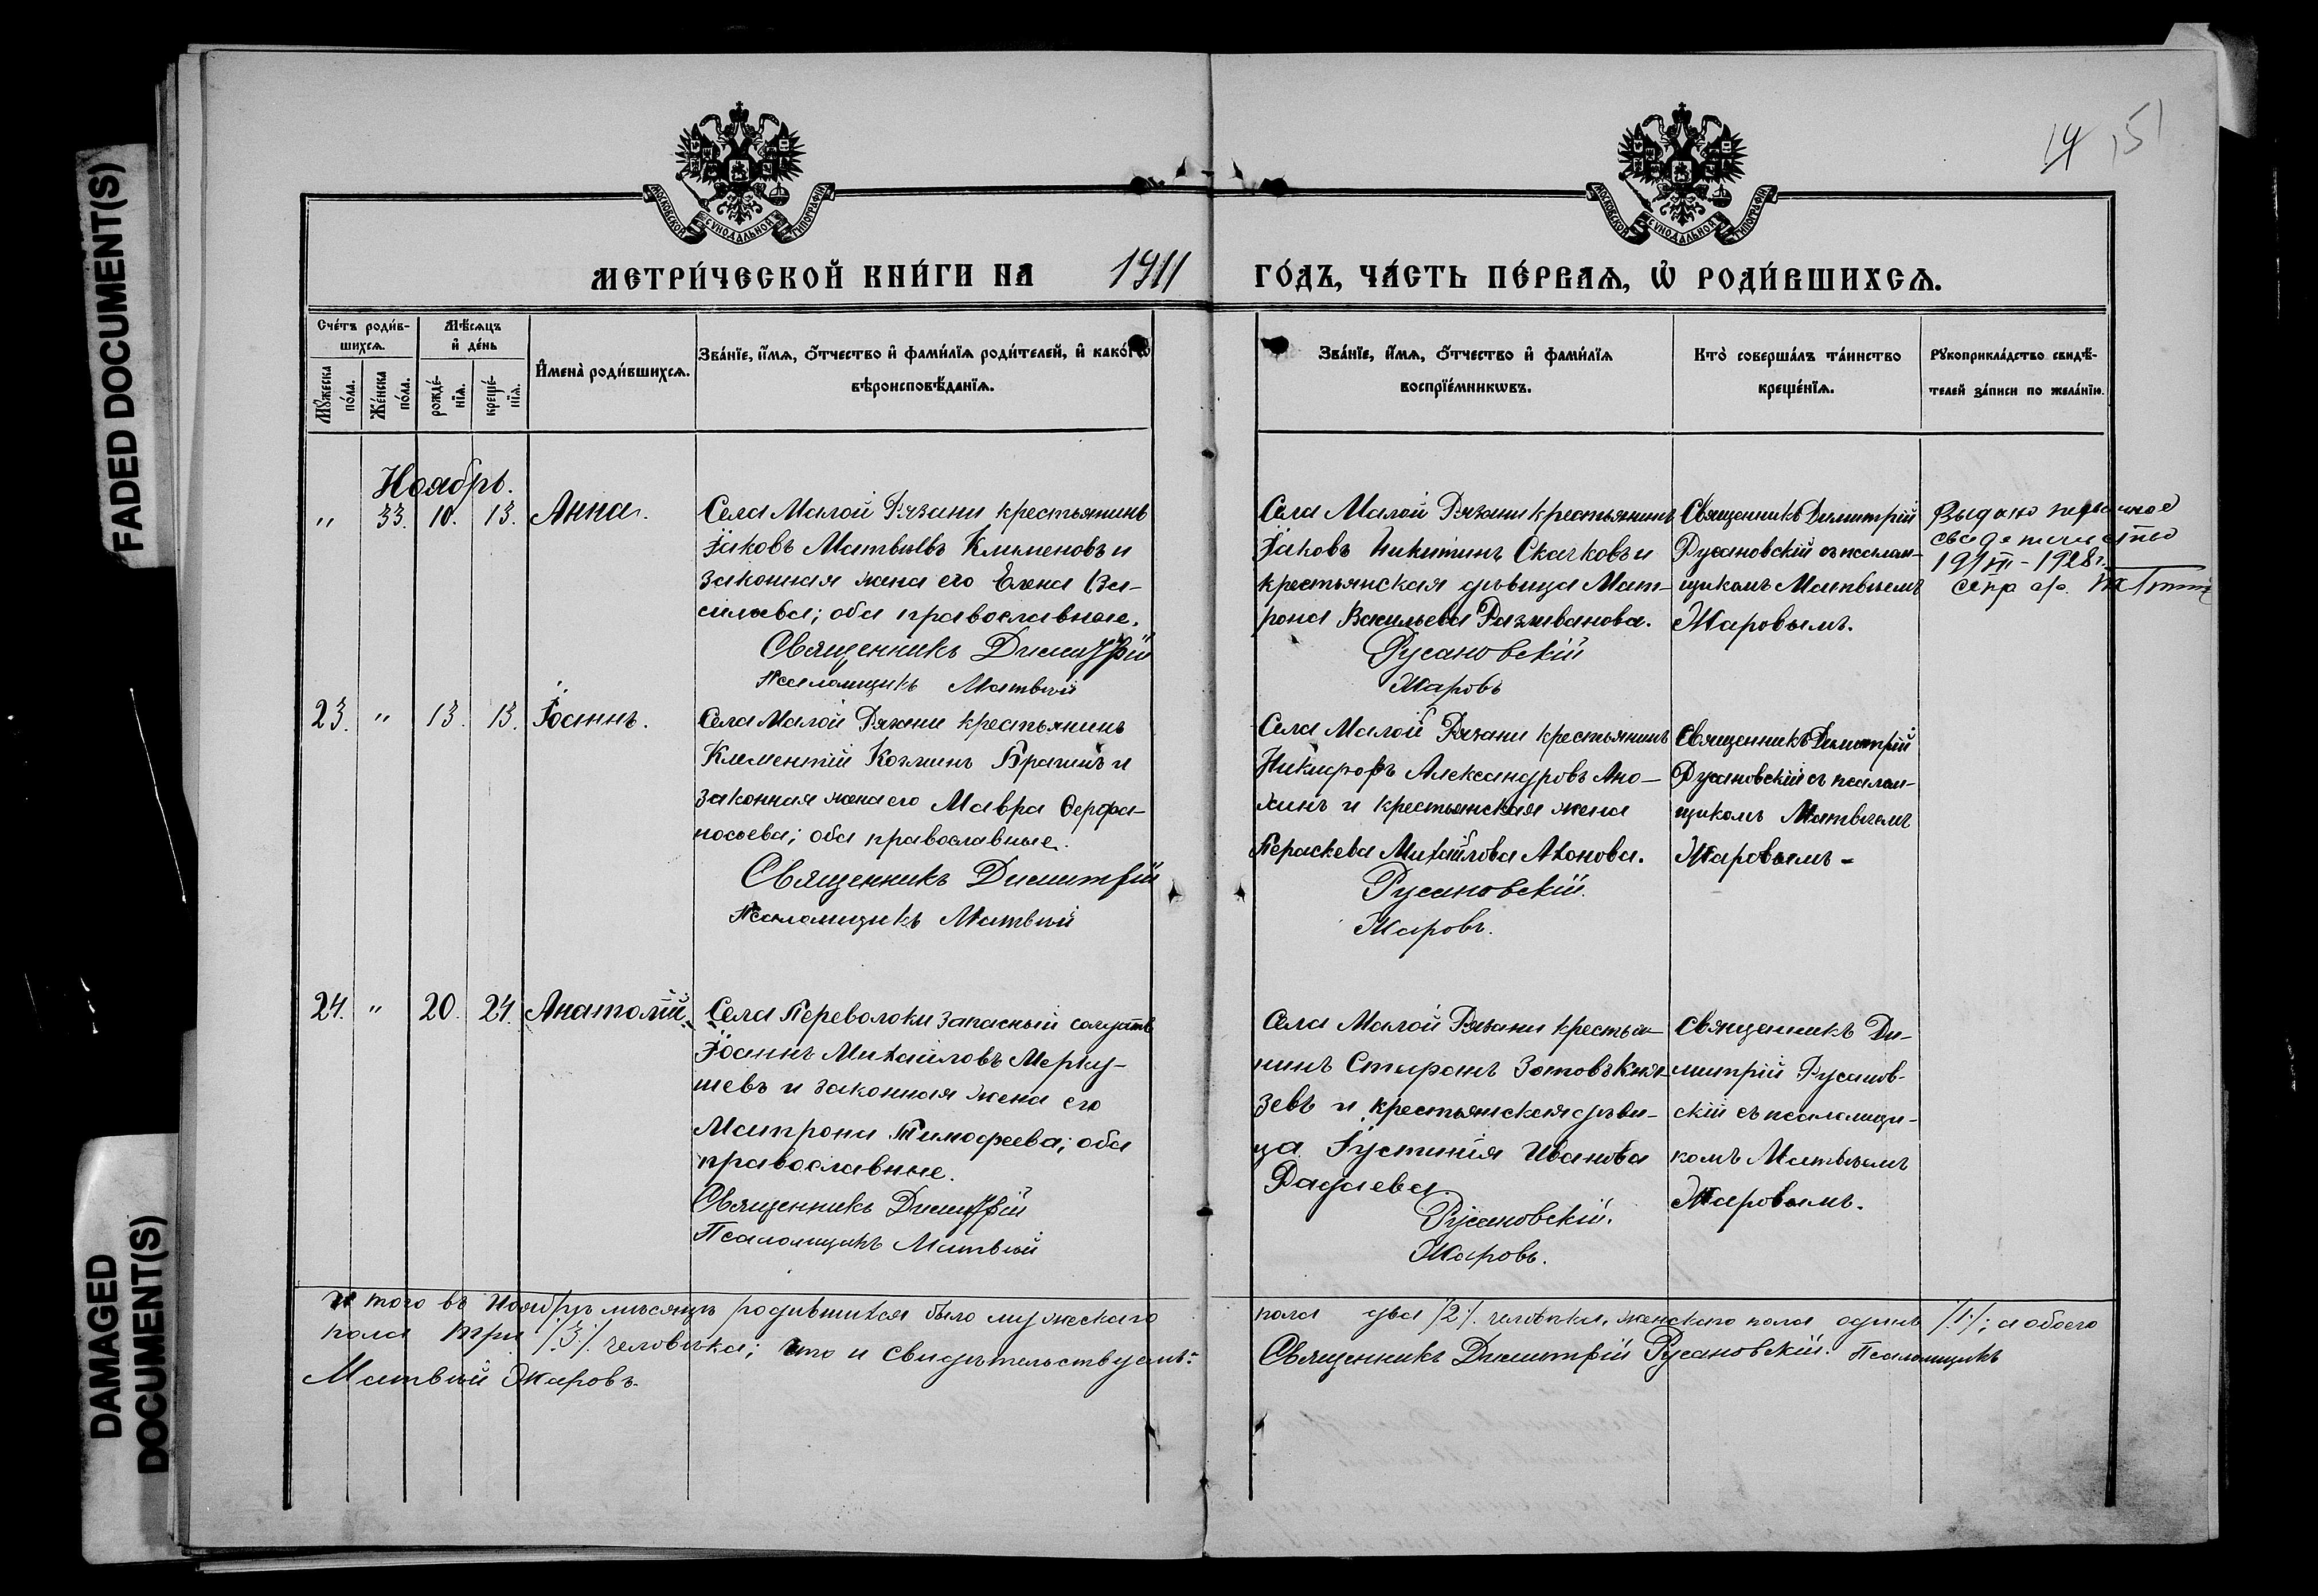 FADED DOCUMENT(S)
DAMAGED
DOCUMENT(S)
14 151
МОСКОВСКОЙ СѴНОДАЛЬНОЙ ТИПОГРАФІИ
МОСКОВСКОЙ СѴНОДАЛЬНОЙ ТИПОГРАФІИ
МЕТРИ́ЧЕСКОЙ КНИ́ГИ НА 1911 ГО́ДЪ, ЧА́СТЬ ПЕ́РВАѦ, Ѡ҆ РОДИ́ВШИХСѦ.
Сче́тъ роди́в-
шихсѧ.
Мꙋ́жеска по́ла.
Же́нска по́ла.
Мѣ́сѧцъ
и҆ де́нь
рожде́-
нїѧ.
креще́-
нїѧ.
И҆мена̀ роди́вшихсѧ.
Зва́нїе, и҆́мѧ, ѻ҆́тчество и҆ фами́лїѧ роди́телей, и҆ како́гѡ
вѣроисповѣ́данїѧ.
Зва́нїе, и҆́мѧ, ѻ҆́тчество и҆ фами́лїѧ
воспрїе́мникѡвъ.
Кто̀ соверша́лъ та́инство
креще́нїѧ.
Рꙋкоприкла́дство свидѣ́-
телей за́писи по жела́нїю.
Ноябрь.
" 33. 10. 13. Анна.
Села Малой Рязани крестьянинъ
Іаковъ Матвѣевъ Клименовъ и
законная жена его Елена Ва-
сильева; оба православные.
Священникъ Димитрій
Псаломщикъ Матвѣй
Села Малой Рязани крестьянинъ
Іаковъ Никитинъ Скачковъ и
крестьянская дѣвица Мат-
рона Васильева Разживанова.
Русановскій
Жаровъ
Священникъ Димитрій
Русановскій съ псалом-
щикомъ Матвѣемъ
Жаровымъ.
Выдано
1928 г.
23. " 13. 13. Іоаннъ.
Села Малой Рязани крестьянинъ
Климентій Козминъ Брагинъ и
законная жена его Мавра Ферфа-
посьева; оба православные.
Священникъ Димитрій
Псаломщикъ Матвѣй
Села Малой Рязани крестьянинъ
Никифоръ Александровъ Ано-
хинъ и крестьянская жена
Параскева Михайлова Ахонова.
Русановскій.
Жаровъ.
Священникъ Димитрій
Русановскій съ псалом-
щикомъ Матвѣемъ
Жаровымъ.
24. " 20. 24. Анатолій.
Села Переволоки запасный солдатъ
Іоаннъ Михайловъ Мерку-
шевъ и законная жена его
Матрона Тимофеева; оба
православные.
Священникъ Димитрій
Псаломщикъ Матвѣй
Села Малой Рязани крестья-
нинъ Зотовъ Кня-
зевъ и крестьянская дѣви-
ца Іустинія Иванова
Радаева
Русановскій.
Жаровъ.
Священникъ Ди-
митрій Русанов-
скій съ псаломщи-
комъ Матвѣемъ
Жаровымъ.
Итого въ Ноябрѣ мѣсяцѣ родившихся было мужескаго пола два /2/. человѣка, женскаго пола одинъ /.1./; а обоего
пола три /.3./. человѣка; что и свидѣтельствуемъ: Священникъ Димитрій Русановскій. Псаломщикъ
Матвѣй Жаровъ.